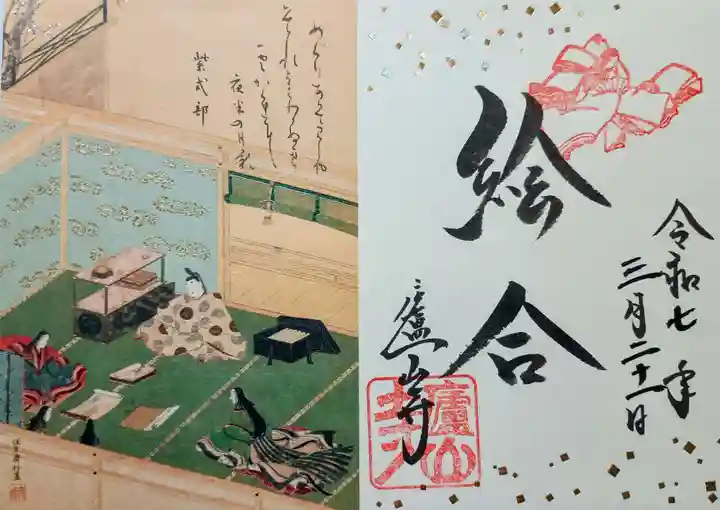 令和七年
三月二十一日
絵合
廬山寺
廬山寺
めくりあひてみしや
それともわかぬまに
雲かくれにし
夜半の月影
紫式部